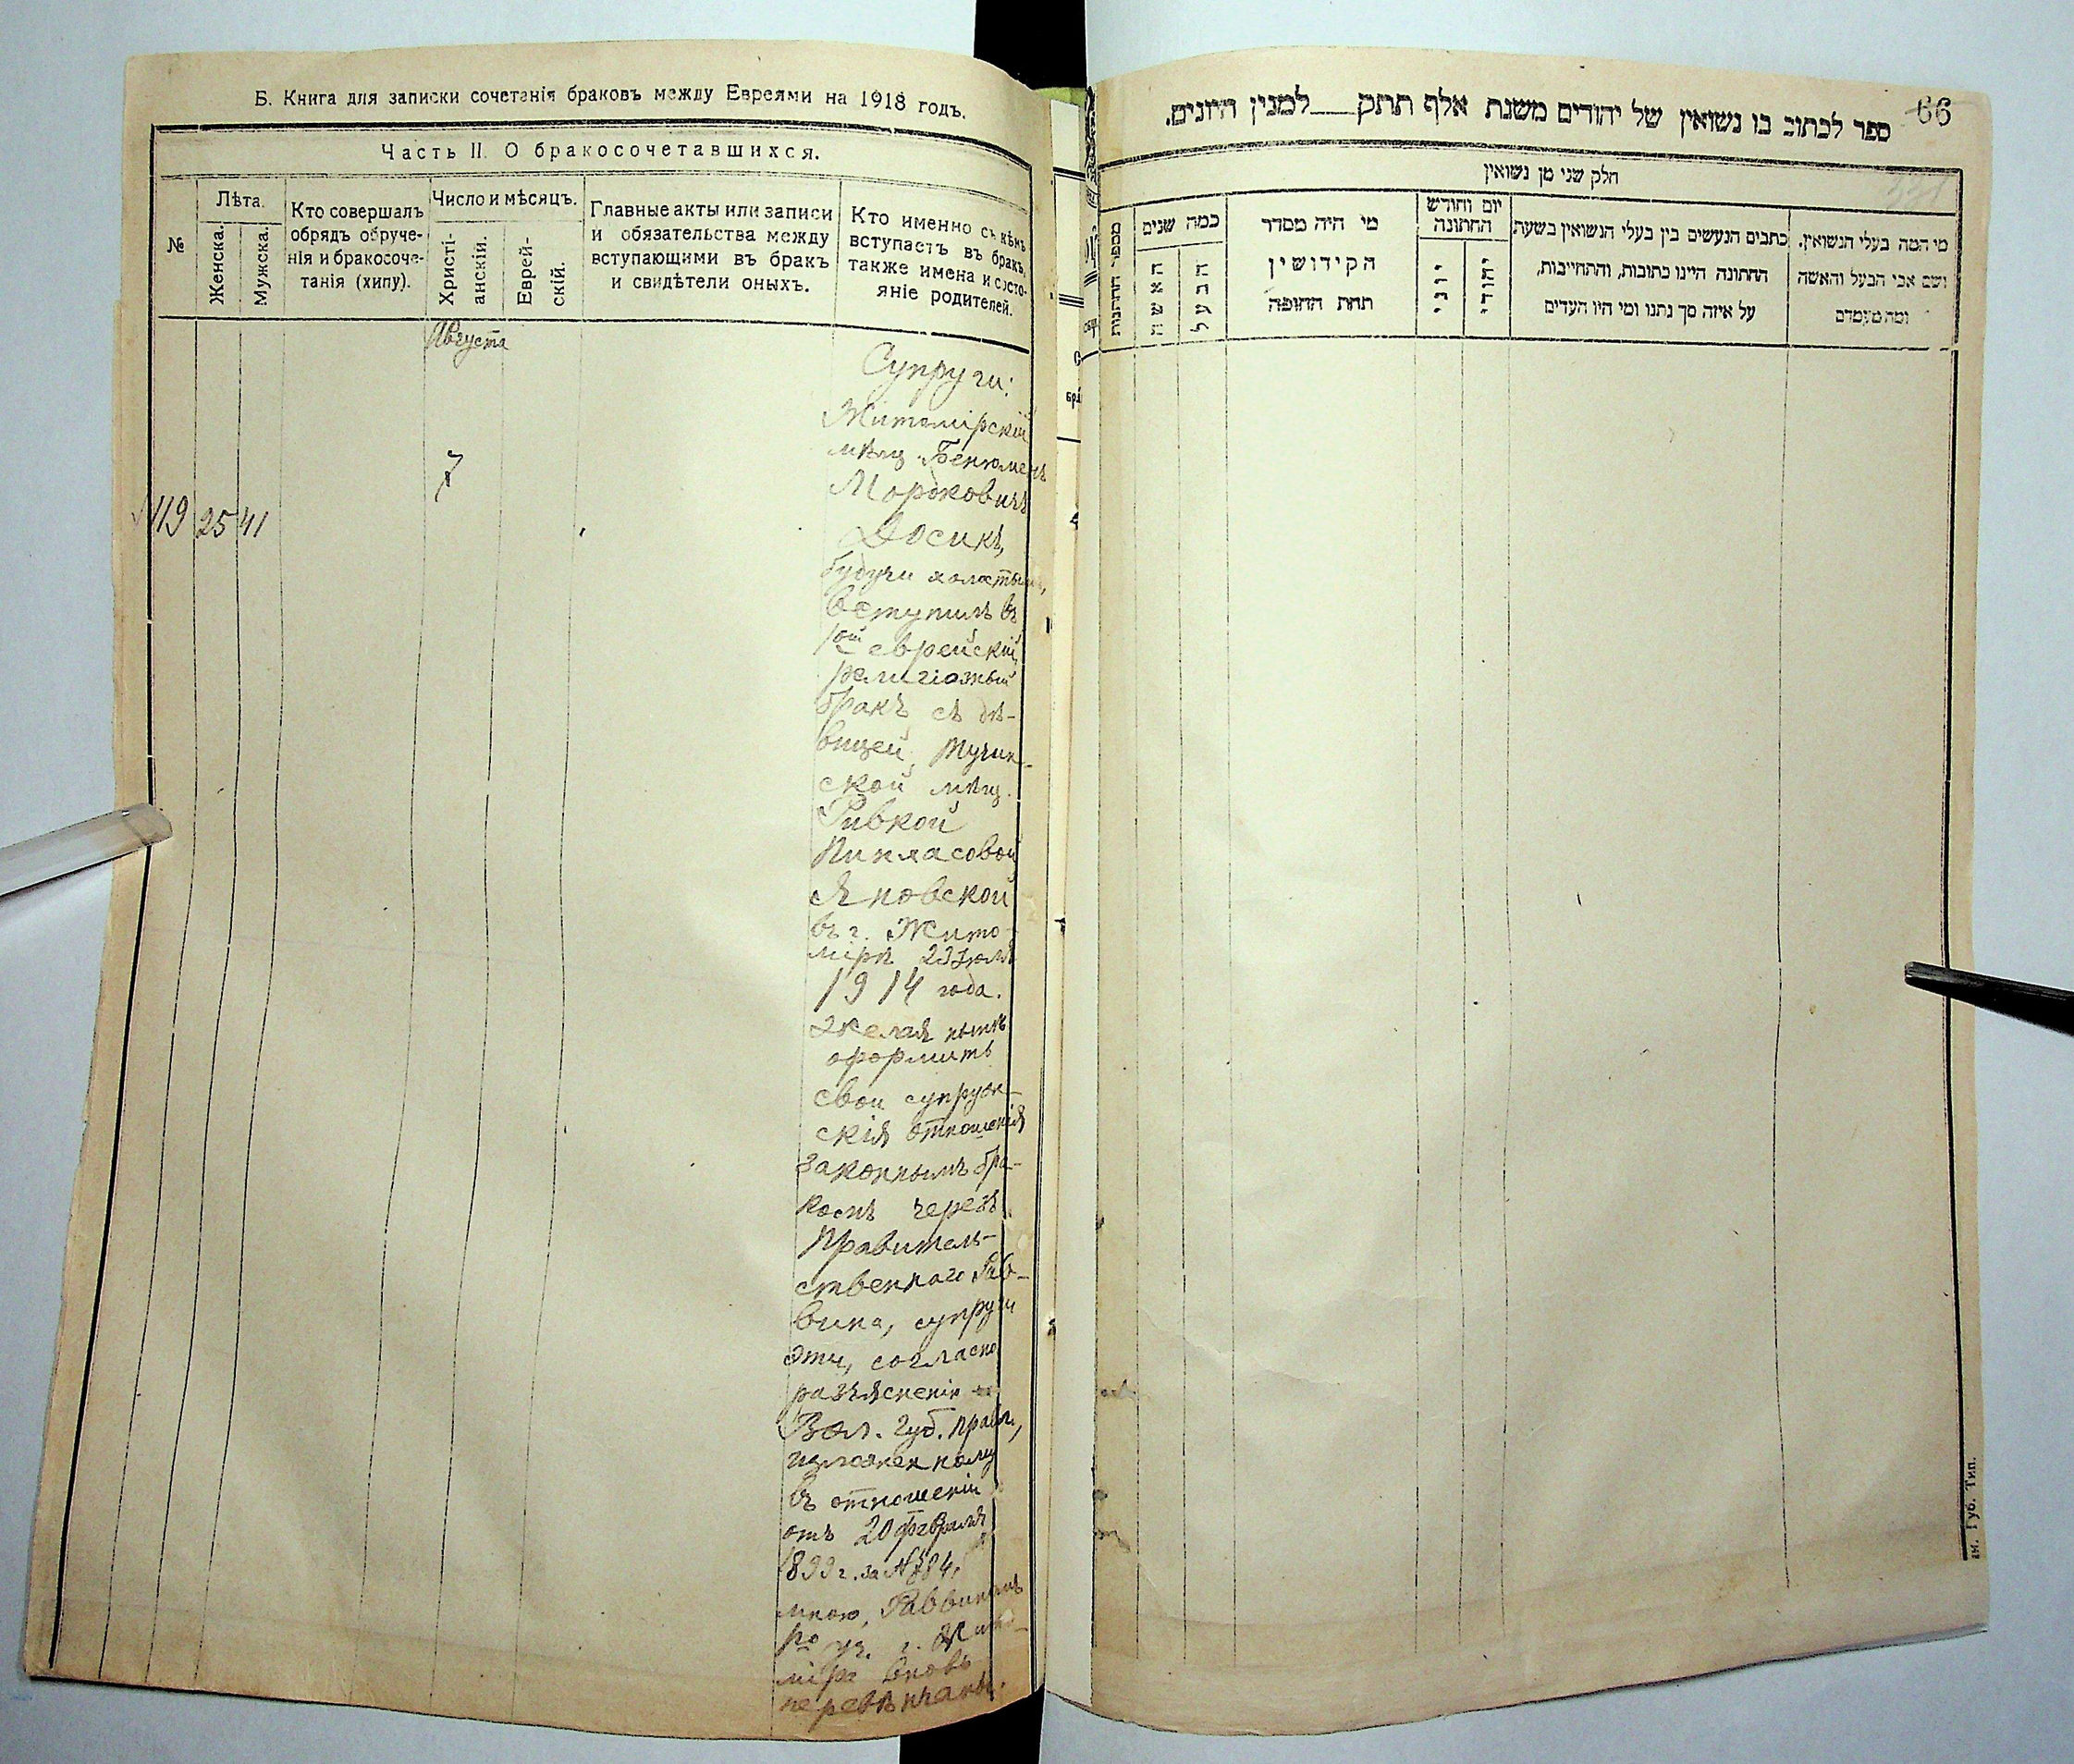 Б. Книга для записки сочетанія браковъ между Евреями на 1918 годъ.
Часть II. О бракосочетавшихся.
№
Лѣта.
Женска.
Мужска.
Кто совершалъ
обрядъ обруче-
нія и бракосоче-
танія (хипу).
Число и мѣсяцъ.
Христі-
анскій.
Еврей-
скій.
Главные акты или записи
и обязательства между
вступающими въ бракъ
и свидѣтели оныхъ.
Кто именно съ кѣмъ
вступаетъ въ бракъ,
также имена и состо-
яніе родителей.
Августа
7
119 25 41
Супруги:
Житомірскій
мѣщ. Бенюменъ
Мордковичъ
Досикъ,
будучи холостымъ,
вступилъ въ
1ой еврейскій
религіозный
бракъ съ дѣ-
вицей, Тучин-
ской мѣщ.
Ривкой
Пинхасовой
Яновской
въ г. Жито-
мірѣ 23 Іюля
1914 года.
Желая нынѣ
оформить
свои супруже-
скія отношенія
законнымъ бра-
комъ черезъ
Правитель-
ственнаго Рав-
вина, супруги
эти, согласно
разъясненію
Вол. Губ. Правл.,
изложенному
въ отношеніи
отъ 20 февраля
1899 г. за № 884,
мною, Раввиномъ
1го уч. г. Жито-
міра вновь
перевѣнчаны.
66
ספר לכתוב בו נשואין של יהודים משנת אלף תתק___למנין היונים.
חלק שני מן נשואין
מספר החתונות
כמה שנים
האשה
הבעל
מי היה מסדר
הקידושין
תחת החופה
יום וחודש
החתונה
יוני
יהודי
כתבים הנעשים בין בעלי הנשואין בשעת
החתונה היינו כתובות, והתחייבות,
על איזה סך נתנו ומי היו העדים
מי המה בעלי הנשואין,
ושם אבי הבעל והאשה
ומה מעמדם
Губ. Тип.